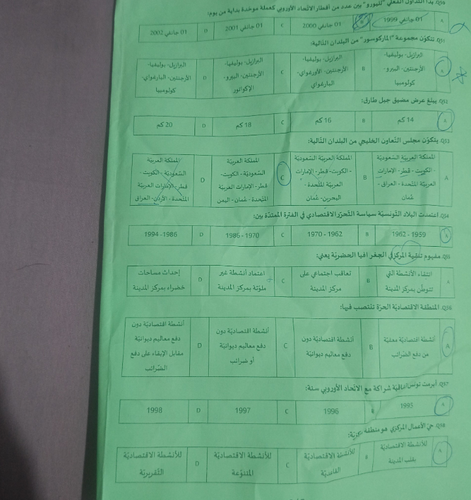 بدأ التداول الفعلي "لليورو" بين عدد من أقطار الاتحاد الأوروبي كعملة موحّدة بداية من يوم:
01 جانفي 1999 B 01 جانفي 2000 C 01 جانفي 2001 D 01 جانفي 2002
تتكوّن مجموعة "الماركوسور" من البلدان التالية:
البرازيل- بوليفيا- B البرازيل- بوليفيا- C البرازيل- بوليفيا- D البرازيل- بوليفيا-
الأرجنتين- البيرو- الأرجنتين- الأورغواي- الأرجنتين- البيرو- الأرجنتين- الباراغواي-
كولومبيا الباراغواي الإكوادور كولومبيا
يبلغ عرض مضيق جبل طارق:
14 كم B 16 كم C 18 كم D 20 كم
يتكوّن مجلس التعاون الخليجي من البلدان التالية:
A المملكة العربية السعودية B المملكة العربية السعودية C المملكة العربية D المملكة العربية
- الكويت- قطر- الإمارات - الكويت- قطر- الإمارات السعودية - الكويت- السعودية - الكويت-
العربية المتحدة - العراق- العربية المتحدة - قطر- الإمارات العربية قطر- الإمارات العربية
عُمان البحرين- عُمان المتحدة - عُمان- اليمن المتحدة- الأردن- العراق
اعتمدت البلاد التونسية سياسة التحرّر الاقتصادي في الفترة الممتدة بين:
1955 - 1962 B 1962 - 1970 C 1970 - 1985 D 1986 - 1994
مفهوم تنقية المركز في الجغرافيا الحضرية يعني:
انتقاء الأنشطة التي B تعاقب اجتماعي على C اعتماد أنشطة غير D إحداث مساحات
تتوطّن بمركز المدينة مركز المدينة ملوّثة بمركز المدينة خضراء بمركز المدينة
المنطقة الاقتصادية الحرة تنتصب فيها:
A أنشطة اقتصادية معفاة B أنشطة اقتصادية دون C أنشطة اقتصادية دون D أنشطة اقتصادية دون
من دفع الضرائب دفع معاليم ديوانية دفع معاليم ديوانية دفع معاليم ديوانية
أو ضرائب مقابل الإبقاء على دفع
الضرائب
أبرمت تونس اتفاقية شراكة مع الاتحاد الأوروبي سنة:
1995 B 1996 C 1997 D 1998
حي الأعمال المركزي هو منطقة تركّز:
للأنشطة الاقتصادية B للأنشطة الاقتصادية C للأنشطة الاقتصادية D للأنشطة الاقتصادية
بقلب المدينة القياديّة المتنوّعة